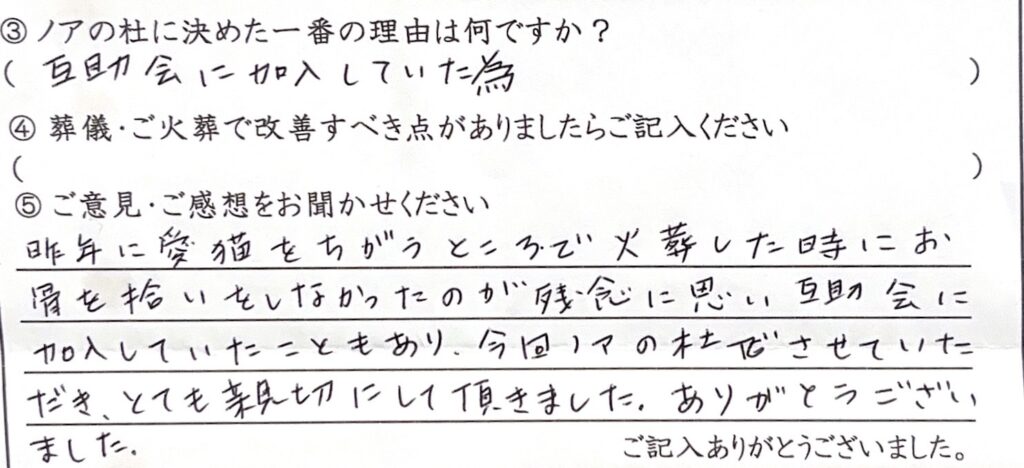 ③ ノアの杜に決めた一番の理由は何ですか？
( 互助会に加入していた為 )
④ 葬儀・ご火葬で改善すべき点がありましたらご記入ください
( )
⑤ ご意見・ご感想をお聞かせください
昨年に愛猫をちがうところで火葬した時にお
骨を拾いをしなかったのが残念に思い互助会に
加入していたこともあり、今回ノアの杜でさせていた
だき、とても親切にして頂きました。ありがとうござい
ました。
ご記入ありがとうございました。